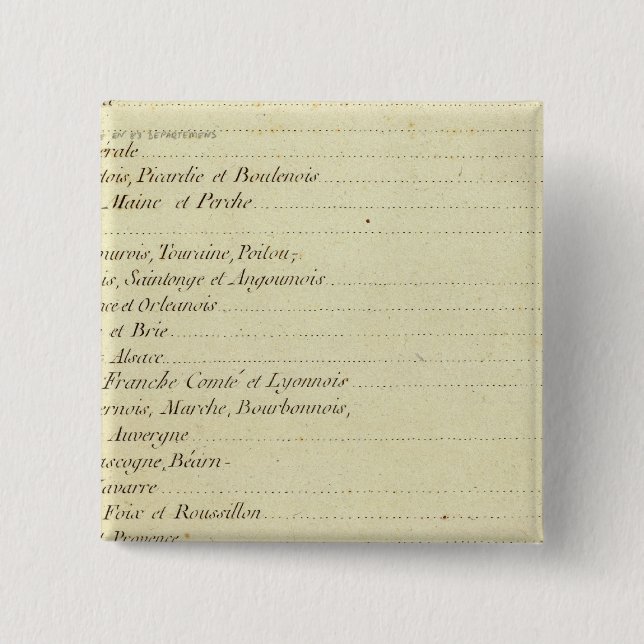 EN 83 DEPARTEMENS
érale
tois, Picardie et Boulenois
Maine et Perche
umurois, Touraine, Poitou,
is, Saintonge et Angoumois
nce et Orleanois
et Brie
Alsace
Franche Comté et Lyonnois
ernois, Marche, Bourbonnois,
Auvergne
ascogne, Béarn
Navarre
Foix et Roussillon
t Provence